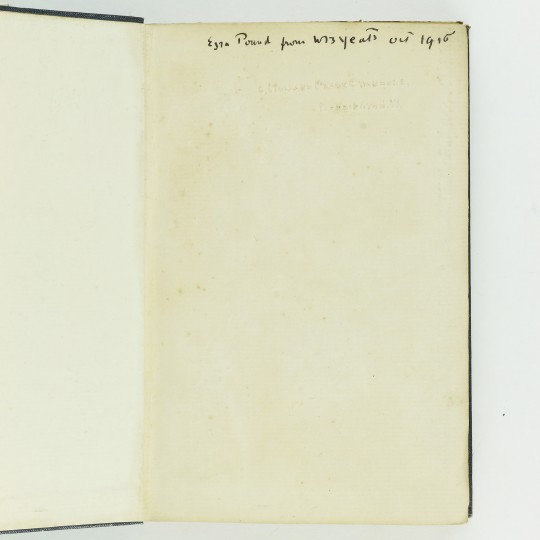 Ezra Pound from WB Yeats oct 1916